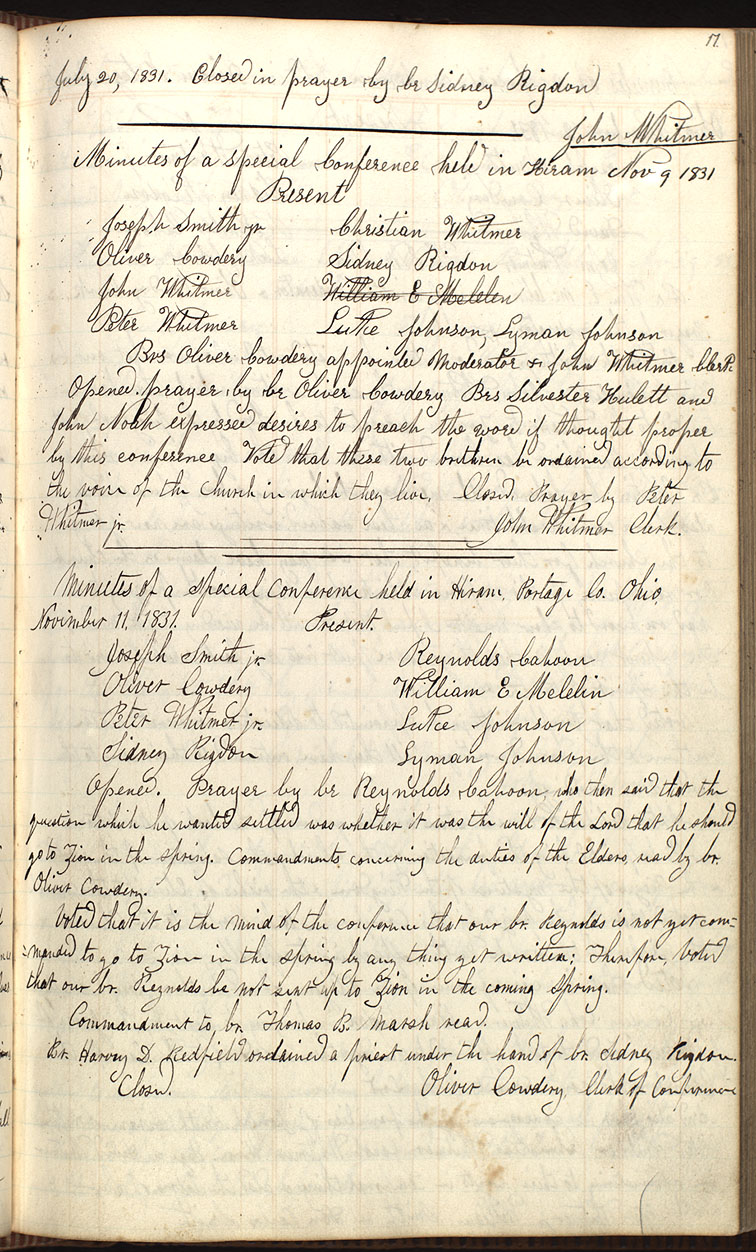 17
July 20, 1831. Closed in prayer by br Sidney Rigdon
John Whitmer
Minutes of a special Conference held in Hiram Nov 9 1831
Present
Joseph Smith jr Christian Whitmer
Oliver Cowdery Sidney Rigdon
John Whitmer William E Mclelen
Peter Whitmer Luke Johnson, Lyman Johnson
Brs Oliver Cowdery appointed Moderator & John Whitmer Clerk.
Opened. prayer by br Oliver Cowdery Brs Silvester Hulett and
John Noah expressed desires to preach the word if thought proper
by this conference Voted that these two brethren be ordained according to
the voice of the Church in which they live. Closed. Prayer by Peter
Whitmer jr. John Whitmer Clerk.
Minutes of a special Conference held in Hiram, Portage Co. Ohio,
November 11. 1831. Present.
Joseph Smith jr. Reynolds Cahoon
Oliver Cowdery William E Mclelin
Peter Whitmer jr. Luke Johnson
Sidney Rigdon Lyman Johnson
Opened. Prayer by br Reynolds Cahoon, who then said that the
question which he wanted settled was whether it was the will of the Lord that he should
go to Zion in the spring. Commandments concerning the duties of the Elders, read by br.
Oliver Cowdery.
Voted that it is the mind of the conference that our br. Reynolds is not yet com=
=manded to go to Zion in the spring by any thing yet written; Therefore, Voted
that our br. Reynolds be not sent up to Zion in the coming Spring.
Commandment to, br. Thomas B. Marsh read.
Br. Harvey D. Redfield ordained a priest under the hand of br. Sidney Rigdon.
Closed. Oliver Cowdery Clerk of Conference